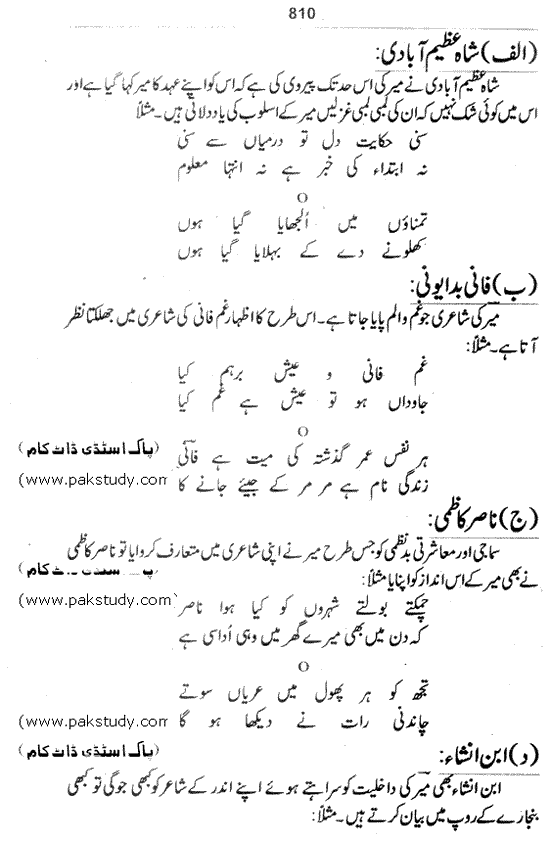 810
(الف) شاہ عظیم آبادی:
شاہ عظیم آبادی نے میر کی اس حد تک پیروی کی ہے کہ اس کو اپنے عہد کا میر کہا گیا ہے اور
اس میں کوئی شک نہیں کہ ان کی لمبی لمبی غزلیں میر کے اسلوب کی یاد دلاتی ہیں۔ مثلاً
سنی حکایت دل تو درمیاں سے سنی
نہ ابتداء کی خبر ہے نہ انتہا معلوم
O
تمناؤں میں اُلجھایا گیا ہوں
کھلونے دے کے بہلایا گیا ہوں
(ب) فانی بدایونی:
میر کی شاعری جو غم و الم پایا جاتا ہے۔ اس طرح کا اظہار غم فانی کی شاعری میں جھلکتا نظر
آتا ہے۔ مثلاً:
غم فانی و عیش برہم کیا
جاوداں ہو تو عیش ہے غم کیا
O
ہر نفس عمر گذشتہ کی میت ہے فانی (پاک اسٹڈی ڈاٹ کام)
زندگی نام ہے مر مر کے جیئے جانے کا (www.pakstudy.com
(ج) ناصر کاظمی:
سماجی اور معاشرتی بدنظمی کو جس طرح میر نے اپنی شاعری میں متعارف کروایا تو ناصر کاظمی
نے بھی میر کے اس انداز کو اپنایا مثلاً:
چمکتے بولتے شہروں کو کیا ہوا ناصر (www.pakstudy.com
کہ دن میں بھی میرے گھر میں وہی اُداسی ہے
O
تجھ کو ہر پھول میں عریاں سوتے
چاندنی رات نے دیکھا ہو گا (www.pakstudy.com
(د) ابن انشاء: (پاک اسٹڈی ڈاٹ کام)
ابن انشاء بھی میر کی داخلیت کو سراہتے ہوئے اپنے اندر کے شاعر کو کبھی جوگی تو کبھی
بنجارے کے روپ میں بیان کرتے ہیں۔ مثلاً: